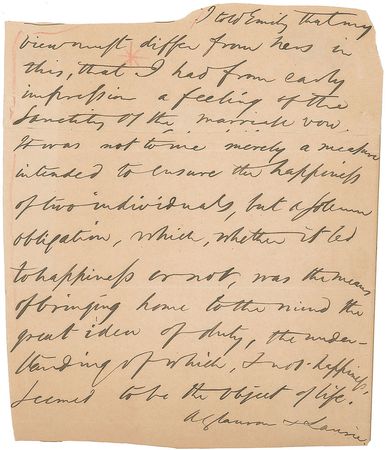 I told Emily that my
view must differ from hers in
this, that I had from early
impression a feeling of the
Sanctity of the marriage vow.
It was not to me merely a measure
intended to ensure the happiness
of two individuals, but a solemn
obligation, which, whether it led
to happiness or not, was the means
of bringing home to the mind the
great idea of duty, the under-
standing of which, & not happiness,
seemed to be the object of life.